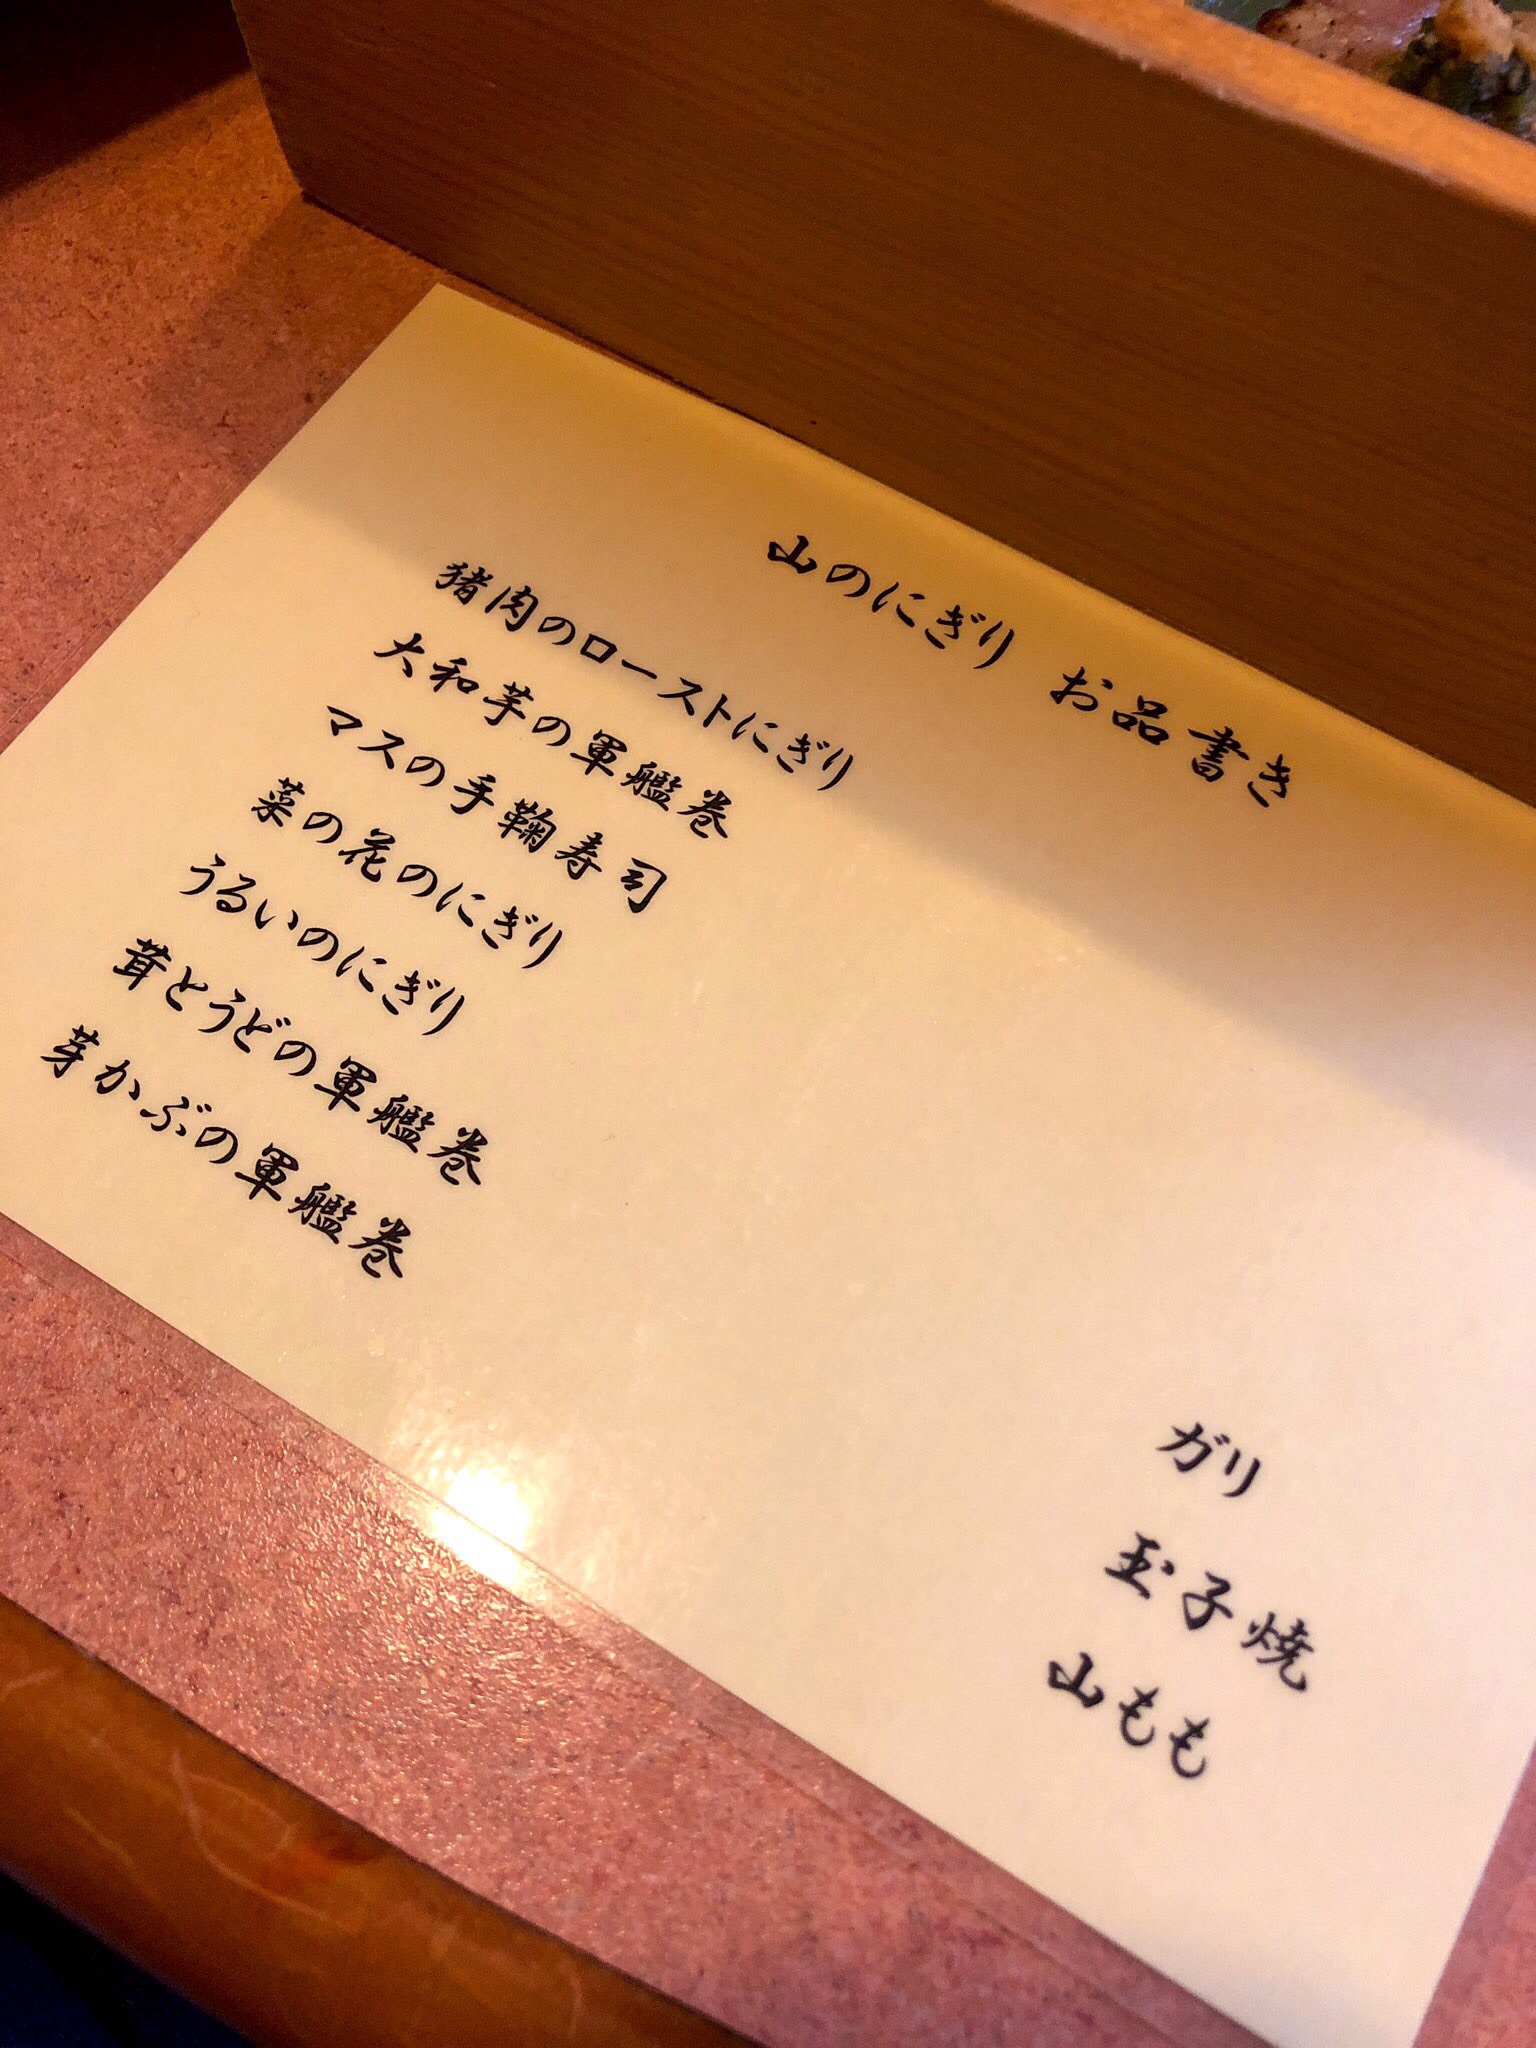 山のにぎり お品書き
猪肉のローストにぎり
大和芋の軍艦巻
マスの手鞠寿司
菜の花のにぎり
うるいのにぎり
茸とうどの軍艦巻
芽かぶの軍艦巻
ガリ
玉子焼
山もも